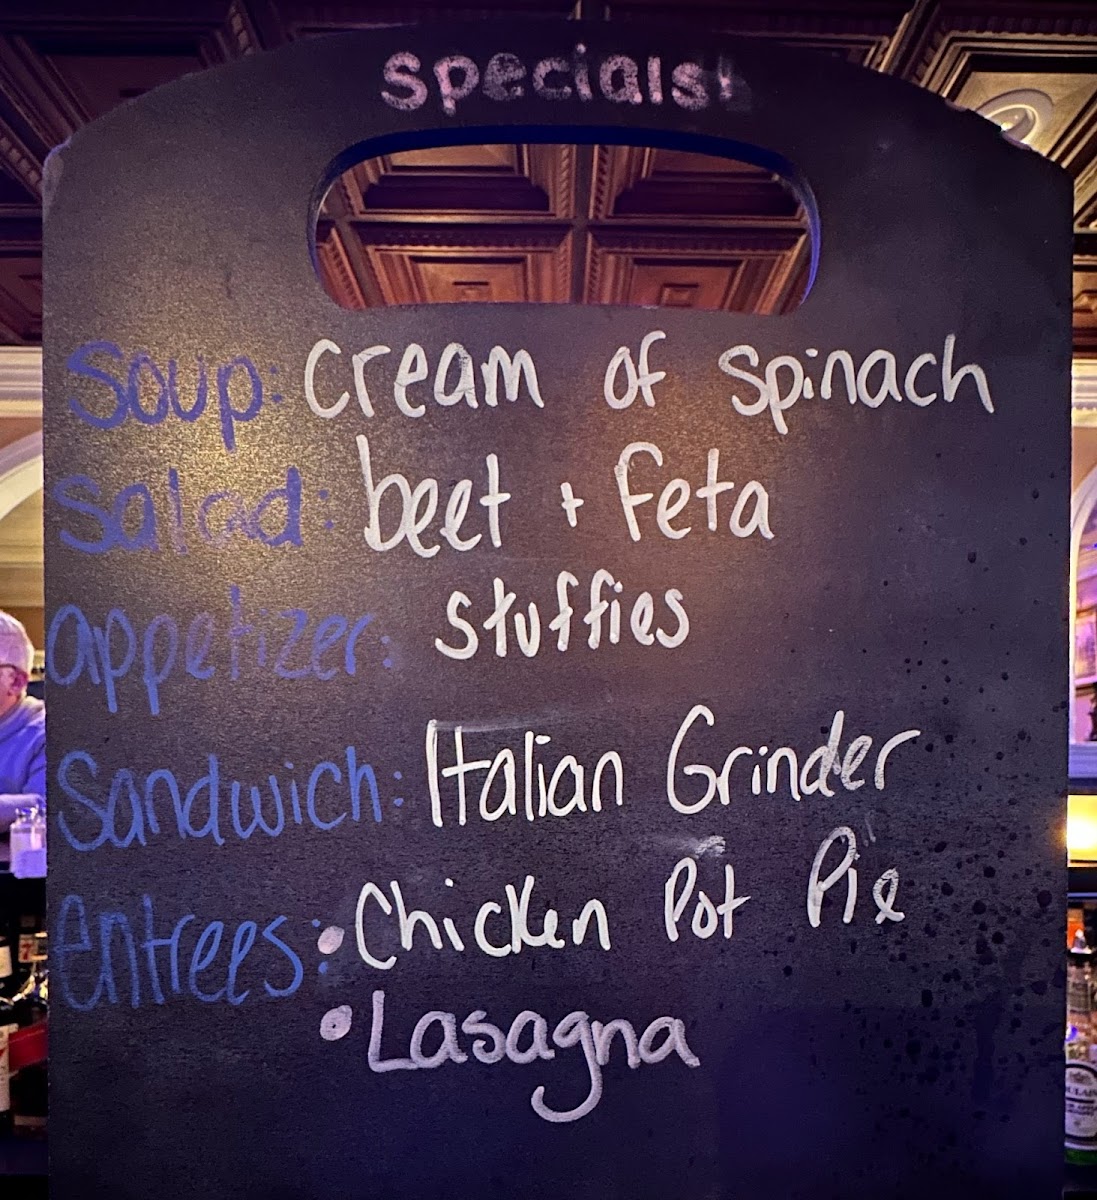 Specials!
Soup: Cream of Spinach
Salad: beet + Feta
appetizer: Stuffies
Sandwich: Italian Grinder
entrees: • Chicken Pot Pie
• Lasagna